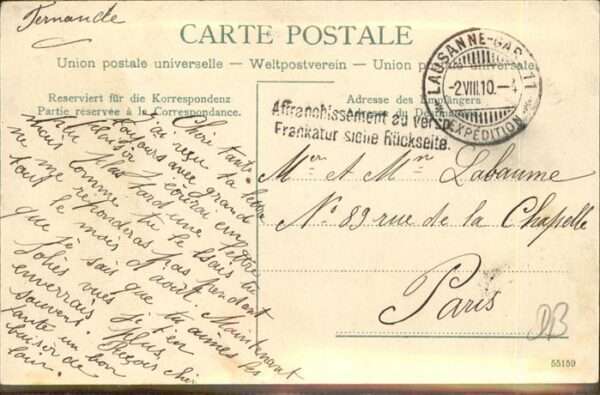 Fernande
CARTE POSTALE
Union postale universelle. — Weltpostverein — Union postale universelle
Reserviert für die Korrespondenz
Partie reservée à la Correspondance.
Adresse des Empfängers
LAUSANNE-GARE
-2.VIII.10.-
EXPÉDITION
Affranchissement au verso.
Frankatur siehe Rückseite.
Chère tante
J'ai reçu ta lettre
toujours avec grand
plaisir
plus tard une lettre
comme tu le sais tu
ne me reponderas pas pendant
tout le mois d'août. Maintenant
que je sais que tu aimes les
jolies vues je t'en
enverrais plus
souvent. Reçois chère
tante un bon
baiser de
Mer et Mr Labaume
No 89 rue de la Chapelle
Paris
DB
55159